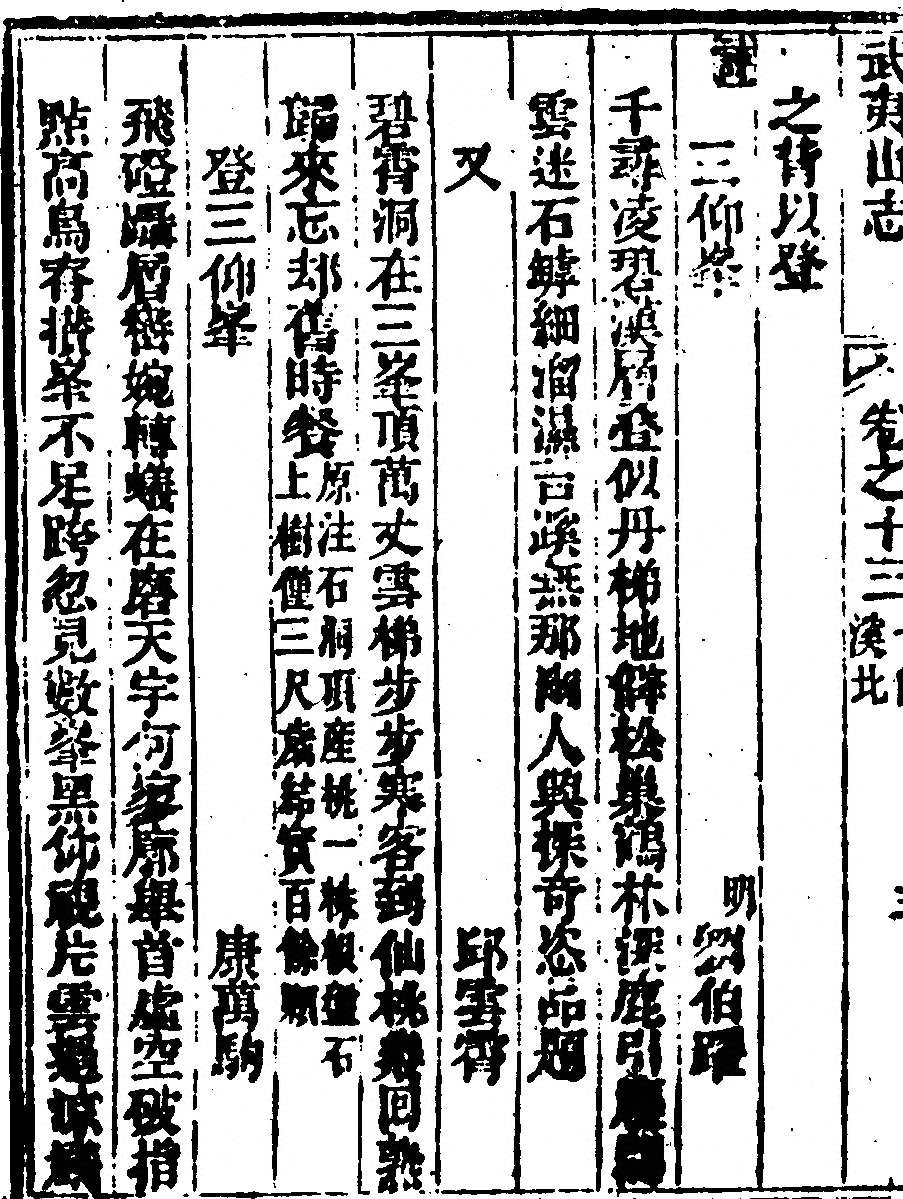 武夷山志 卷之十三 溪北
之背以登
詩
三仰峯 明 劉伯躍
千尋凌碧漢層登似丹梯地僻松巢鶴林深鹿引麛
雲迷石罅細溜濕古蹊無那兩人與探奇恣品題
又 邱雲霄
碧霄洞在三峯頂萬丈雲梯步步寒客到仙桃回熟
歸來忘却舊時餐
原注石洞頂産桃一株根盤石
上樹僅三尺歲結實百餘顆
登三仰峯 康萬駒
飛磴躡層巒婉轉蟻在磨天宇何寥廓舉首虛空破指
點高鳥脊攢峯不足跨忽見數峯黑片雲過